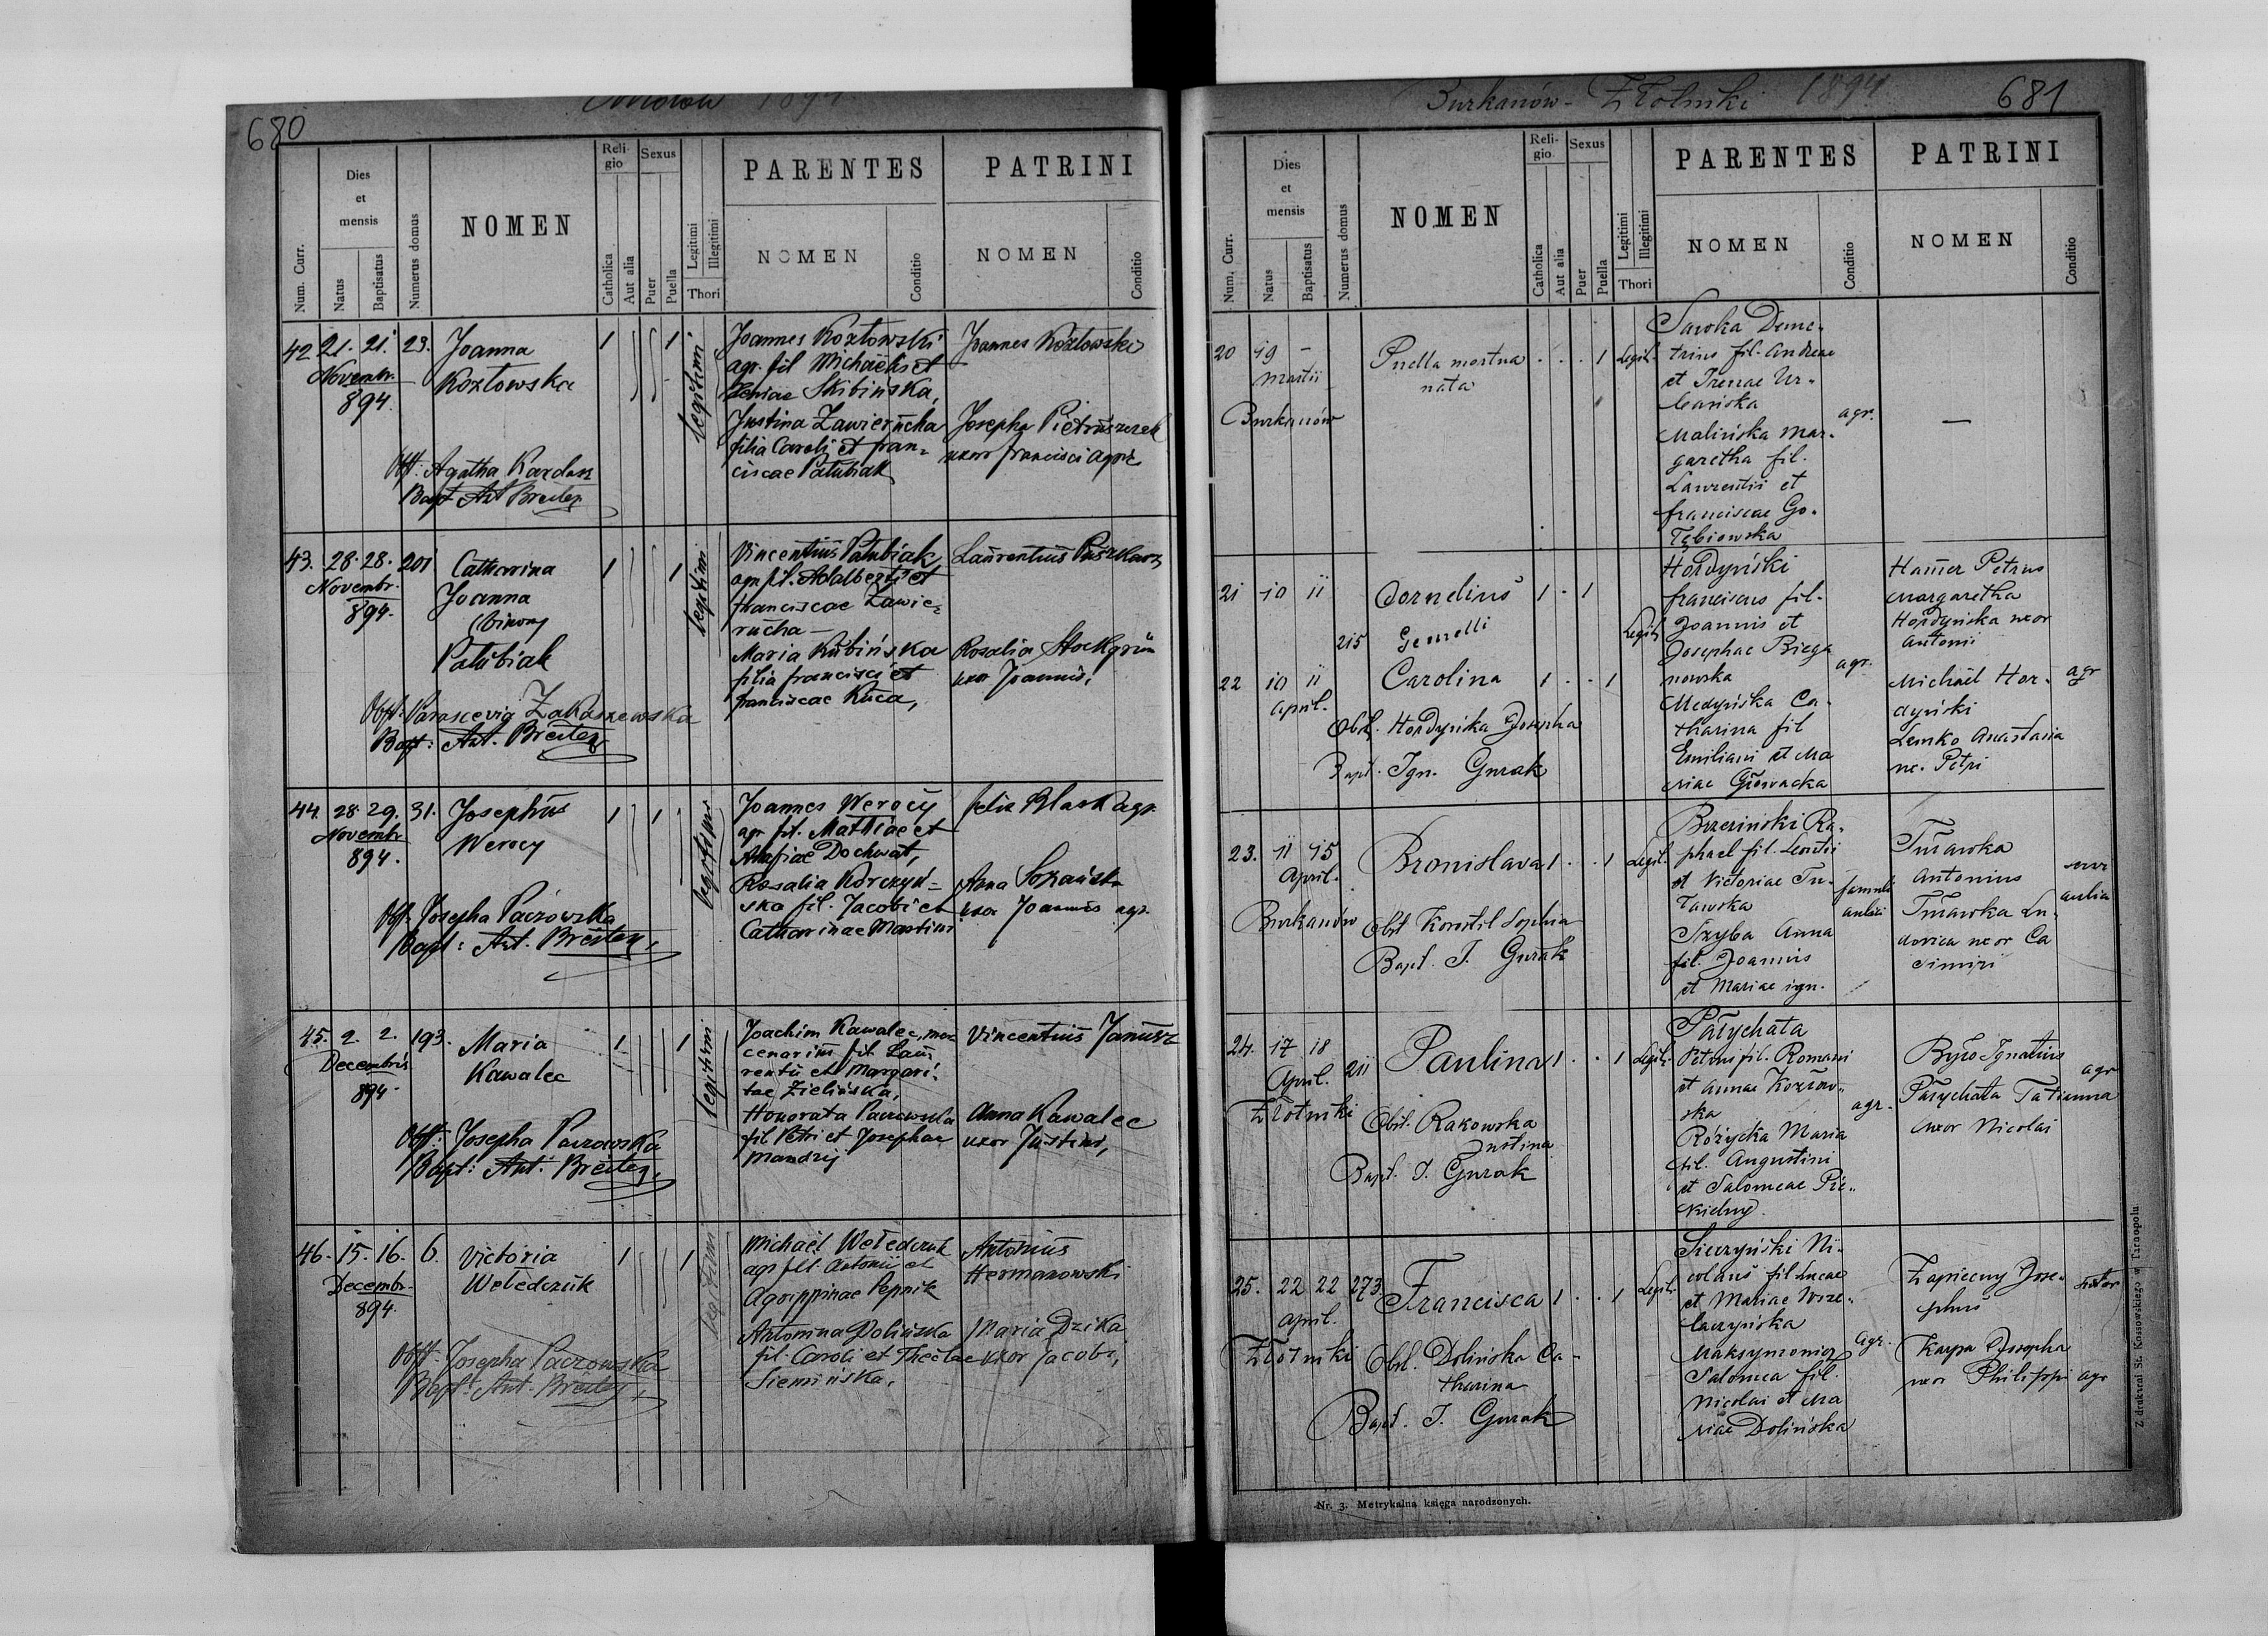 680
1894
Num. Curr.
Dies et mensis
Natus
Baptisatus
Numerus domus
NOMEN
Religio
Catholica
Aut alia
Sexus
Puer
Puella
Legitimi
Illegitimi
Thori
PARENTES
NOMEN
Conditio
PATRINI
NOMEN
Conditio
42 21. 21. 23.
Novembr.
894.
Joanna
Kozłowska
1 1
legitimi
Joannes Kozłowski
agr. fil Michaëlis et
Skibińska,
Justina Zawierucha
filia Caroli et Fran=
ciscae Pałubiak
Joannes Kozłowski
Josepha Pietruszczak
uxor Francisci agric
Obst: Agatha Kardasz
Bapt Ant Breiter
43. 28. 28. 201
Novembr.
894.
Catharina
Joanna
(binom)
Pałubiak
1 1
legitimi
Vincentius Pałubiak
agr fil. Adalberti et
Franciscae Zawie=
rucha
Maria Kubińska
filia Francisci et
Franciscae Kuca,
Laurentius Puszkarz
Rosalia Stockgrün
uxor Joannis,
Obst: Parascevia Zakaszewska
Bapt: Ant. Breiter
44. 28. 29. 31.
Novembr
894.
Josephus
Werocy
1 1
legitimi
Joannes Werocy
agr fil. Mathiae et
Dochwat,
Rosalia Korczyń=
ska fil. Jacobi et
Catharinae Martini
Felix Blask agr.
Anna
uxor Joannis agr.
Obst: Josepha Paczowska
Bapt: Ant. Breiter,
45. 2. 2. 193.
Decembris
894.
Maria
Kawalec
1 1
legitimi
Joachim Kawalec, mer
cenarius fil Lau
rentii et Margari
tae Zielińska,
Honorata Paczowska
fil Petri et Josephae
Mandzij
Vincentius Janusz
Anna Kawalec
uxor Justini,
Obst: Josepha Paczowska
Bapt: Ant. Breiter,
46. 15. 16. 6.
Decembr.
894.
Victoria
Wełedczuk
1 1
legitimi
Michaël Wełedczuk
agr fil. Antonii et
Agrippinae Pepnik
Antonina Dolińska
fil. Caroli et Theclae
Siemińska,
Antonius
Hermanowski
Maria Dzika
uxor Jacobi,
Obst: Josepha Paczowska
Bapt: Ant. Breiter,
Burkanów - Złotniki 1894
681
Num. Curr.
Dies et mensis
Natus
Baptisatus
Numerus domus
NOMEN
Religio.
Catholica
Aut alia
Sexus
Puer
Puella
Legitimi
Illegitimi
Thori
PARENTES
NOMEN
Conditio
PATRINI
NOMEN
Conditio
20 19 -
Martii
Burkanów
Puella mortua
nata
. . . 1 Legit.
Sawka Deme-
trius fil. Andreae
et Irenae Ur-
bańska
Malińska Mar-
garetha fil.
Laurentii et
Franciscae Go-
łębiowska
agr.
—
21 10 11
Cornelius 1 . 1
215 Gemelli Legit.
22 10 11
April.
Carolina 1 . . 1
Obst. Hordyńska Josepha
Bapt. Ign. Gurak
Hordyński
Franciscus fil.
Joannis et
Josephae Biega
nowska
Medyńska Ca-
tharina fil
Emiliani et Ma
riae Głowacka
agr.
Hamer Petrus
Margaretha
Hordyńska uxor
Antonii
Michaël Hor-
dyński
Lemko Anastasia
ux. Petri
agr
23. 11 15
April.
Burkanów
Bronislava 1 . . 1 Legit.
Obst Sophia
Bapt. I. Gurak
Brzeziński Ra-
phael fil. Leontii
et Victoriae Tu-
rawska
Trzyba Anna
fil. Joannis
et Mariae ign.
Antonius
uxor Ca
simiri
24. 17 18
April. 211
Złotniki
Paulina 1 . . 1 Legit.
Obst. Rakowska
Justina
Bapt. I. Gurak
Pałychata
Petrus fil. Romani
et Annae Kozłow-
ska
Różycka Maria
fil. Augustini
et Salomeae Pie-
kielny
agr.
Było Ignatius
agr
Pałychata Tatianna
uxor Nicolai
25. 22 22 273
April.
Złotniki
Francisca 1 . . 1 Legit.
Obst. Dolińska Ca-
tharina
Bapt. I. Gurak
Sieczyński Ni-
colaus fil Lucae
et Mariae
Maksymowicz
Salomea fil.
Nicolai et Ma
riae Dolińska
agr.
Zapieczny Jose-
phus
sutor
Karpa Josepha
uxor Philippi agr
Nr. 3. Metrykalna księga narodzonych.
Z drukarni St. Kossowskiego w Tarnopolu